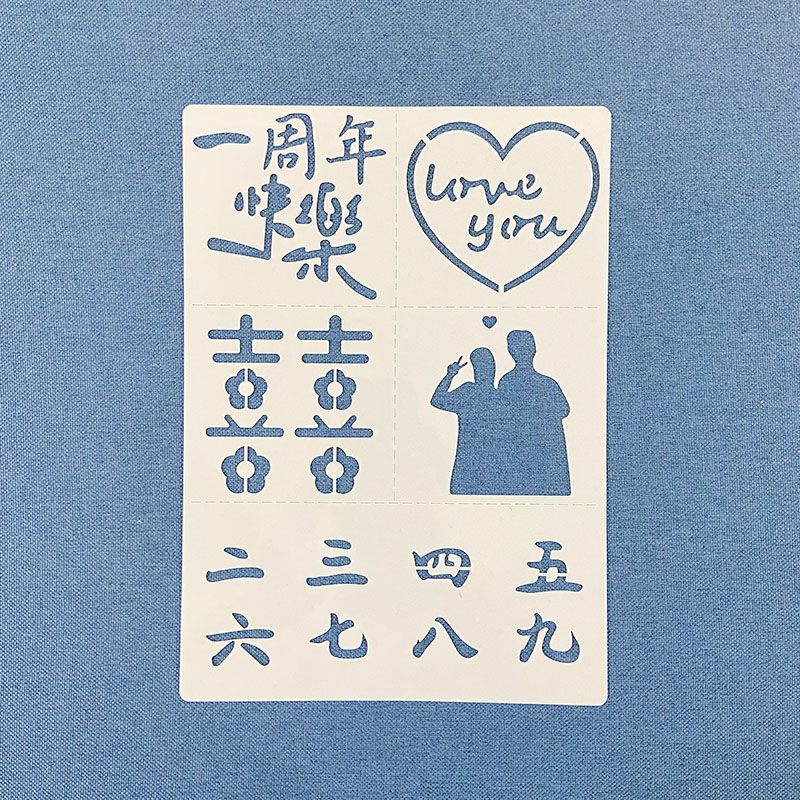 一周年
快樂
love
you
囍
二 三 四 五
六 七 八 九